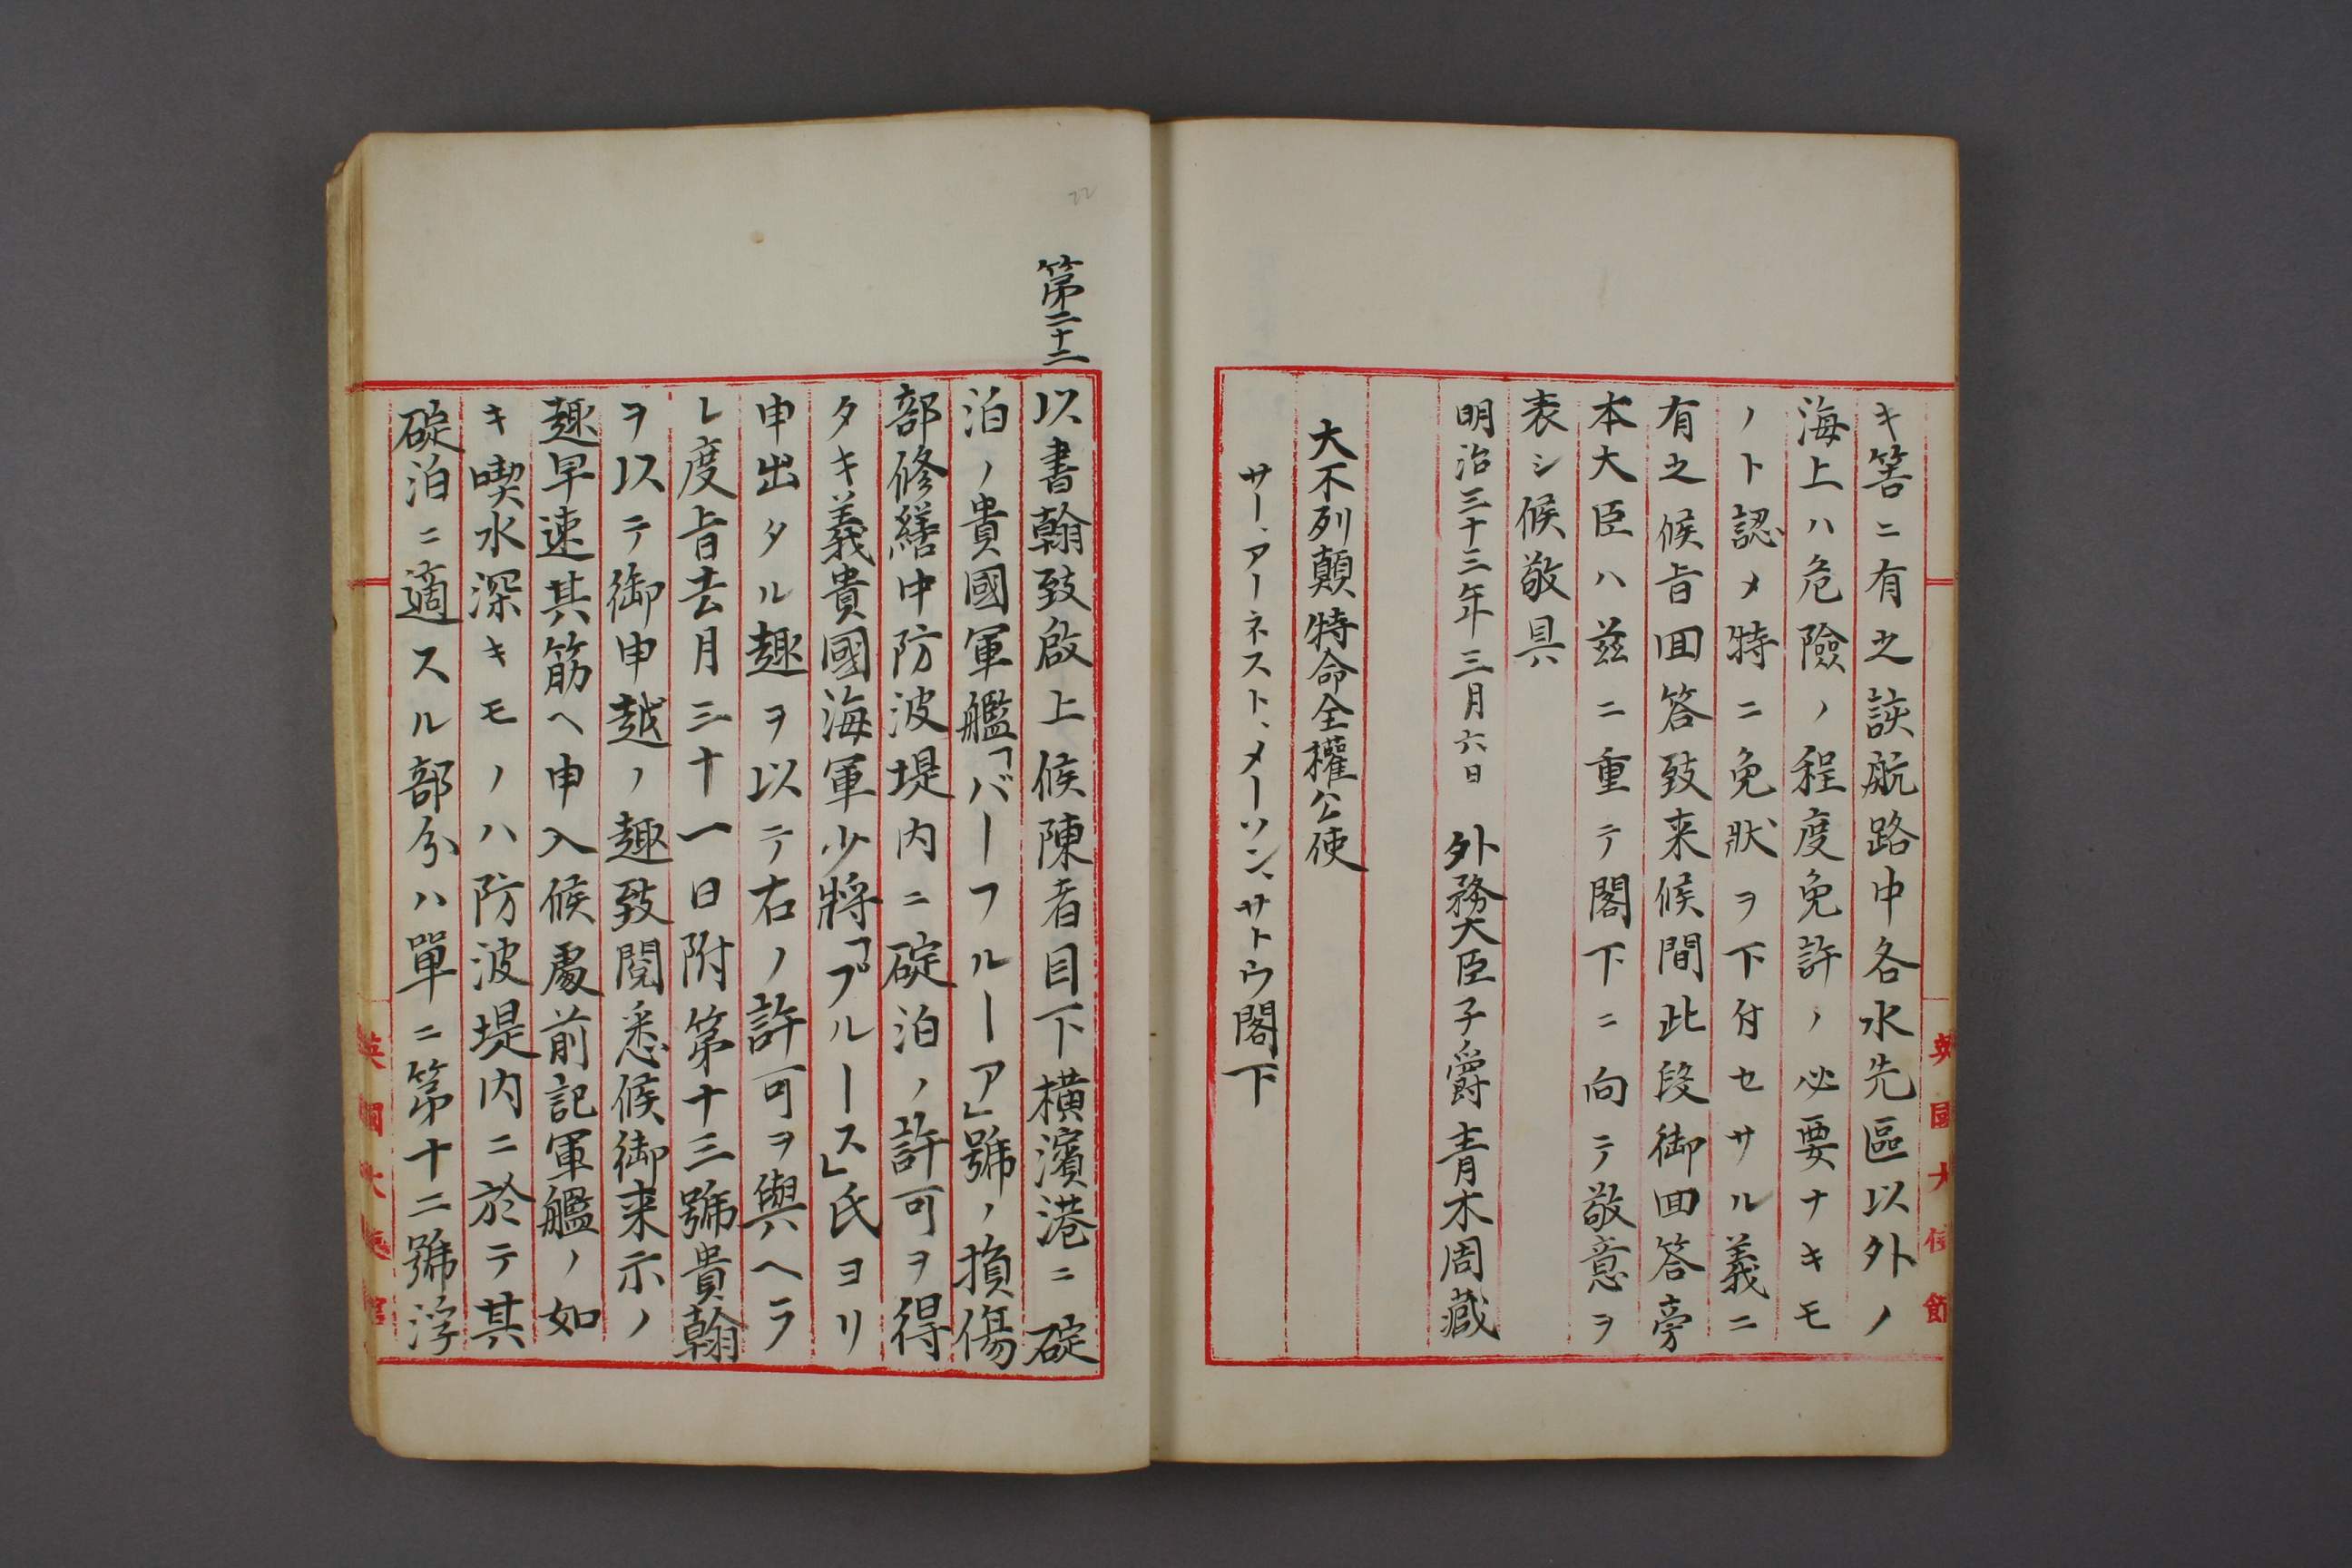 キ筈ニ有之該航路中各水先區以外ノ
海上ハ危險ノ程度免許ノ必要ナキモ
ノト認メ特ニ免狀ヲ下付セサル義ニ
有之候旨回答致来候間此段御回答旁
本大臣ハ茲ニ重テ閣下ニ向テ敬意ヲ
表シ候敬具
明治三十三年三月六日 外務大臣子爵青木周蔵
大不列顛特命全權公使
サー、アーネスト、メーソン、サトウ閣下
22
第二十二
以書翰致啟上候陳者目下横濱港ニ碇
泊ノ貴國軍艦「バーフルーア」號ノ損傷
部修繕中防波堤内ニ碇泊ノ許可ヲ得
タキ義貴國海軍少將「ブルース」氏ヨリ
申出タル趣ヲ以テ右ノ許可ヲ與ヘラ
レ度旨去月三十一日附第十三號貴翰
ヲ以テ御申越ノ趣致閲悉候御来示ノ
趣早速其筋ヘ申入候處前記軍艦ノ如
キ喫水深キモノハ防波堤内ニ於テ其
碇泊ニ適スル部分ハ單ニ第十二號浮